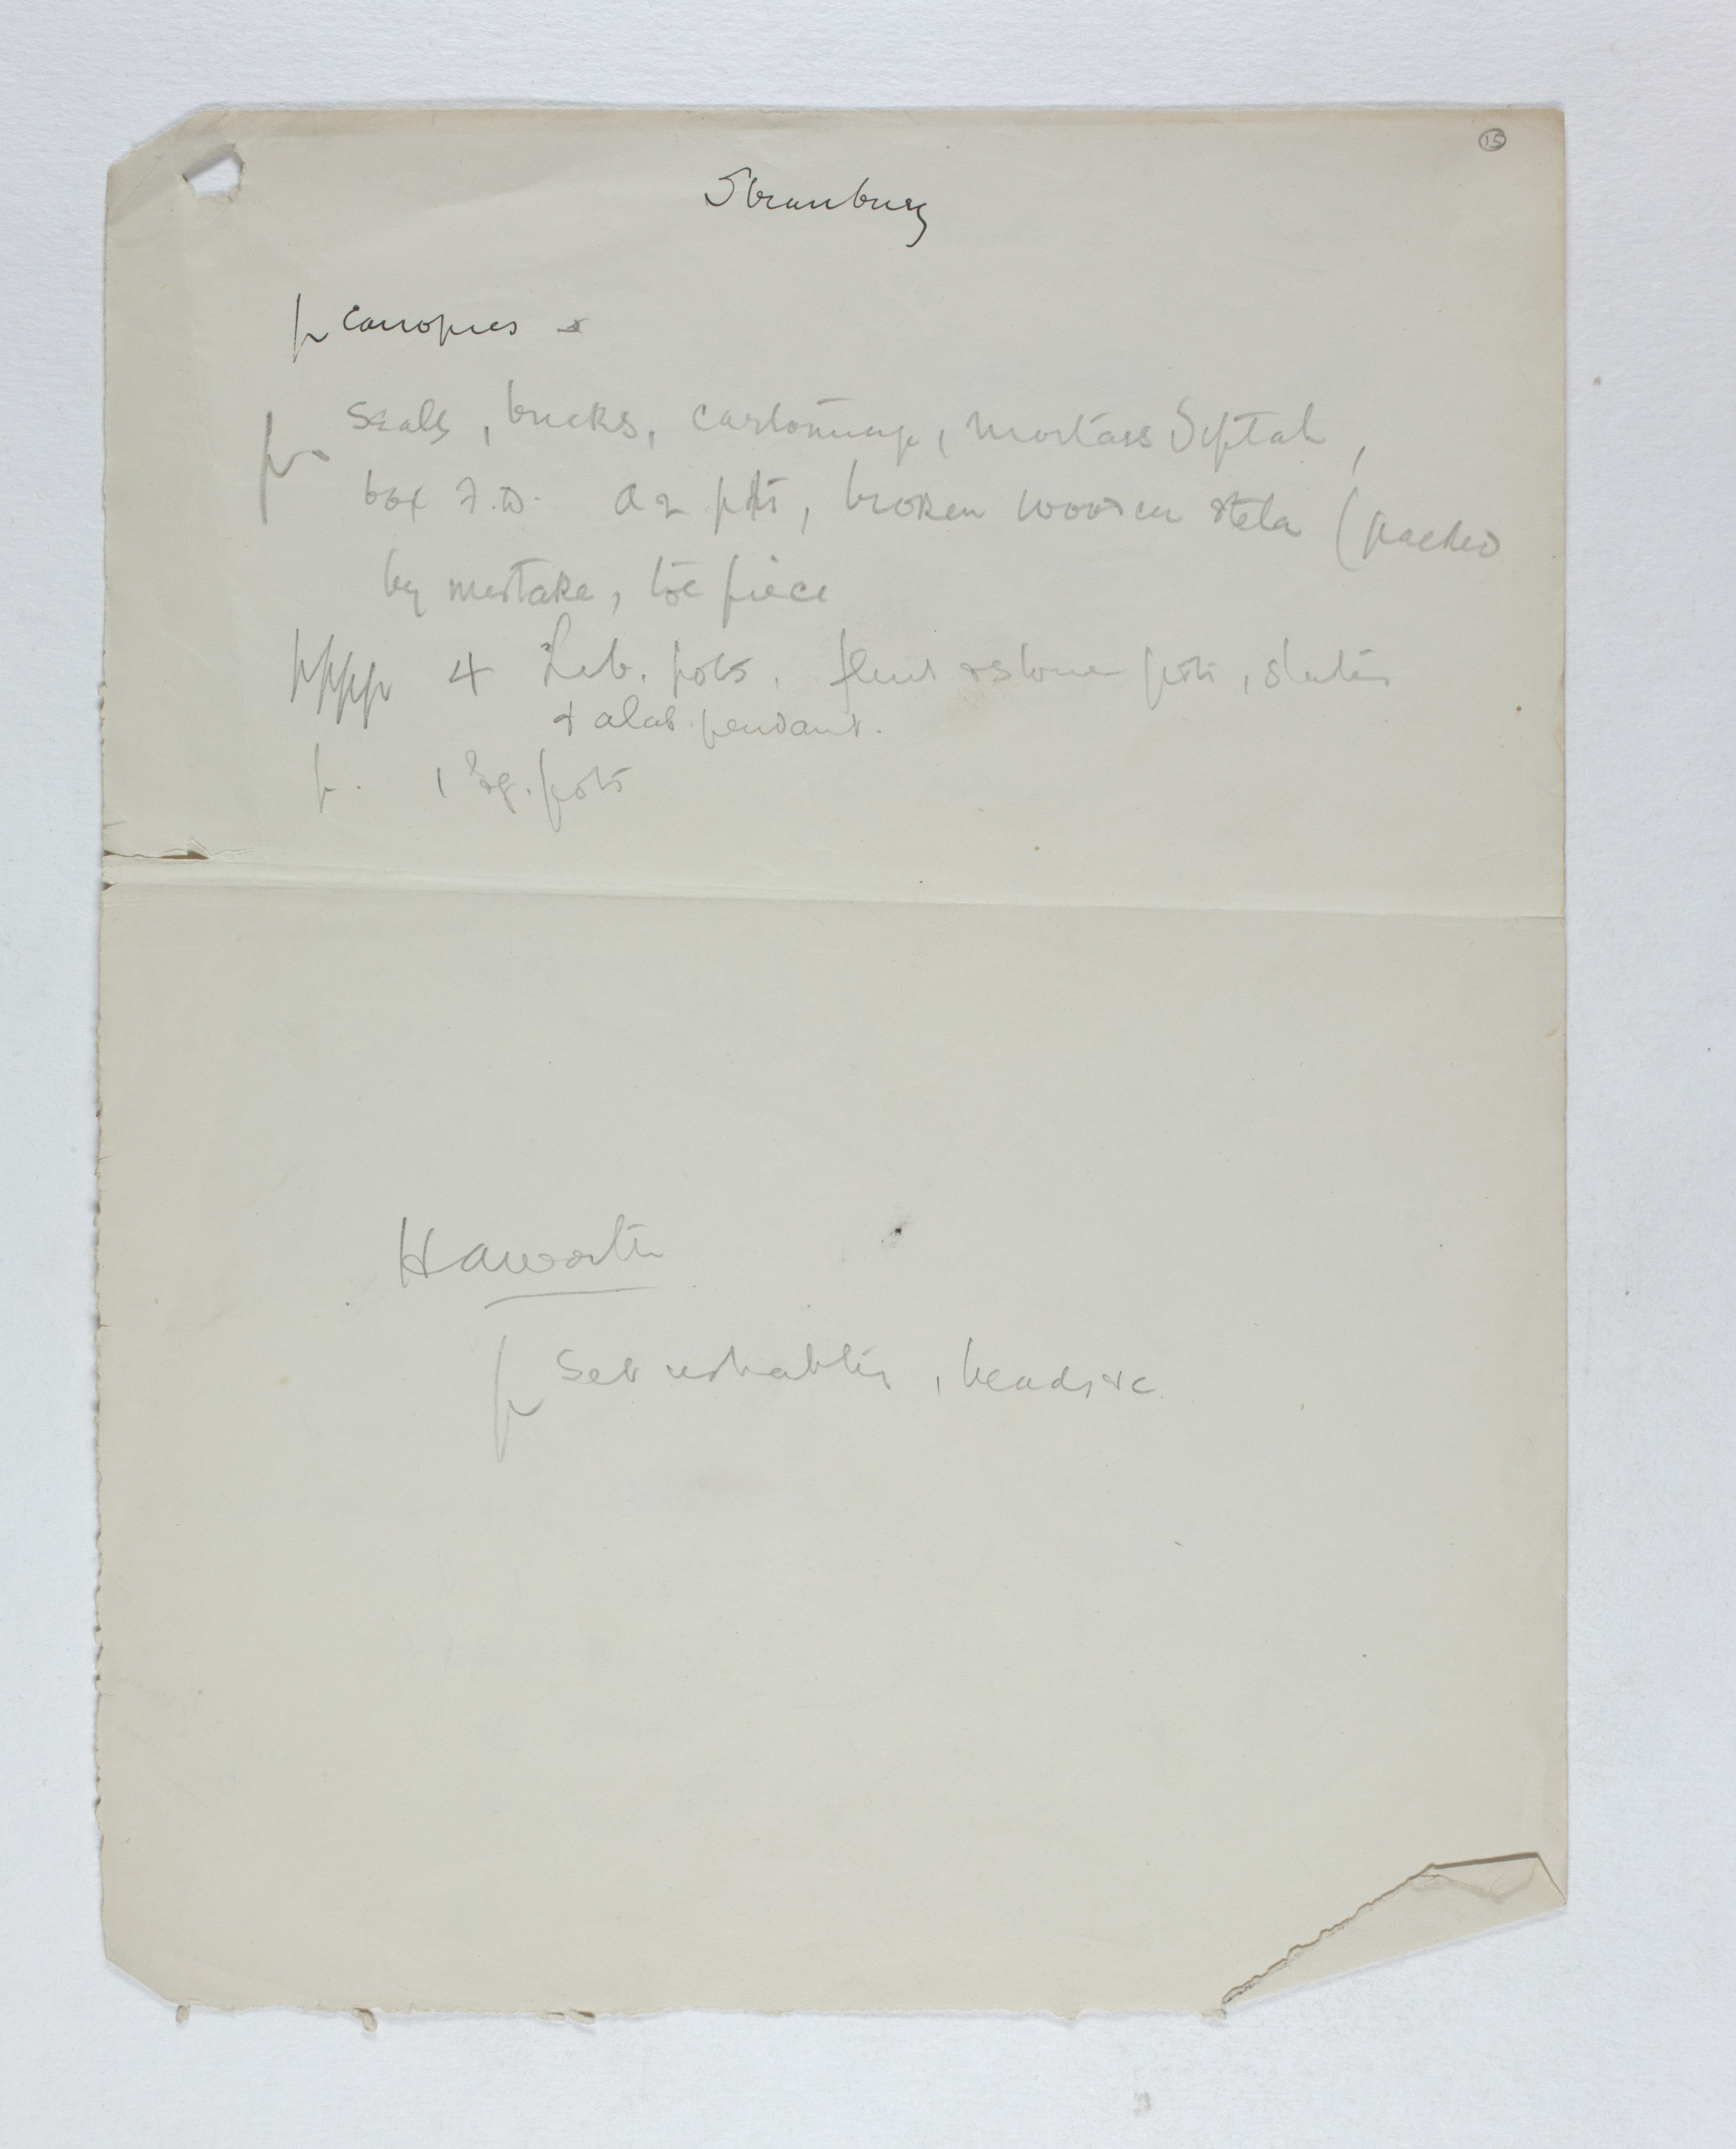 15
Strasburg
p canopics
p. seals, bricks, cartonnage, mortars Siptah,
box F.D. A 2 pots, broken wooden stela (packed
by mistake, toe piece
pppp 4 Lib. pots, flint & stone pots, slates
& alab. pendant.
p. 1 Eg. pots
Haworth
p Set ushabtis, beads &c